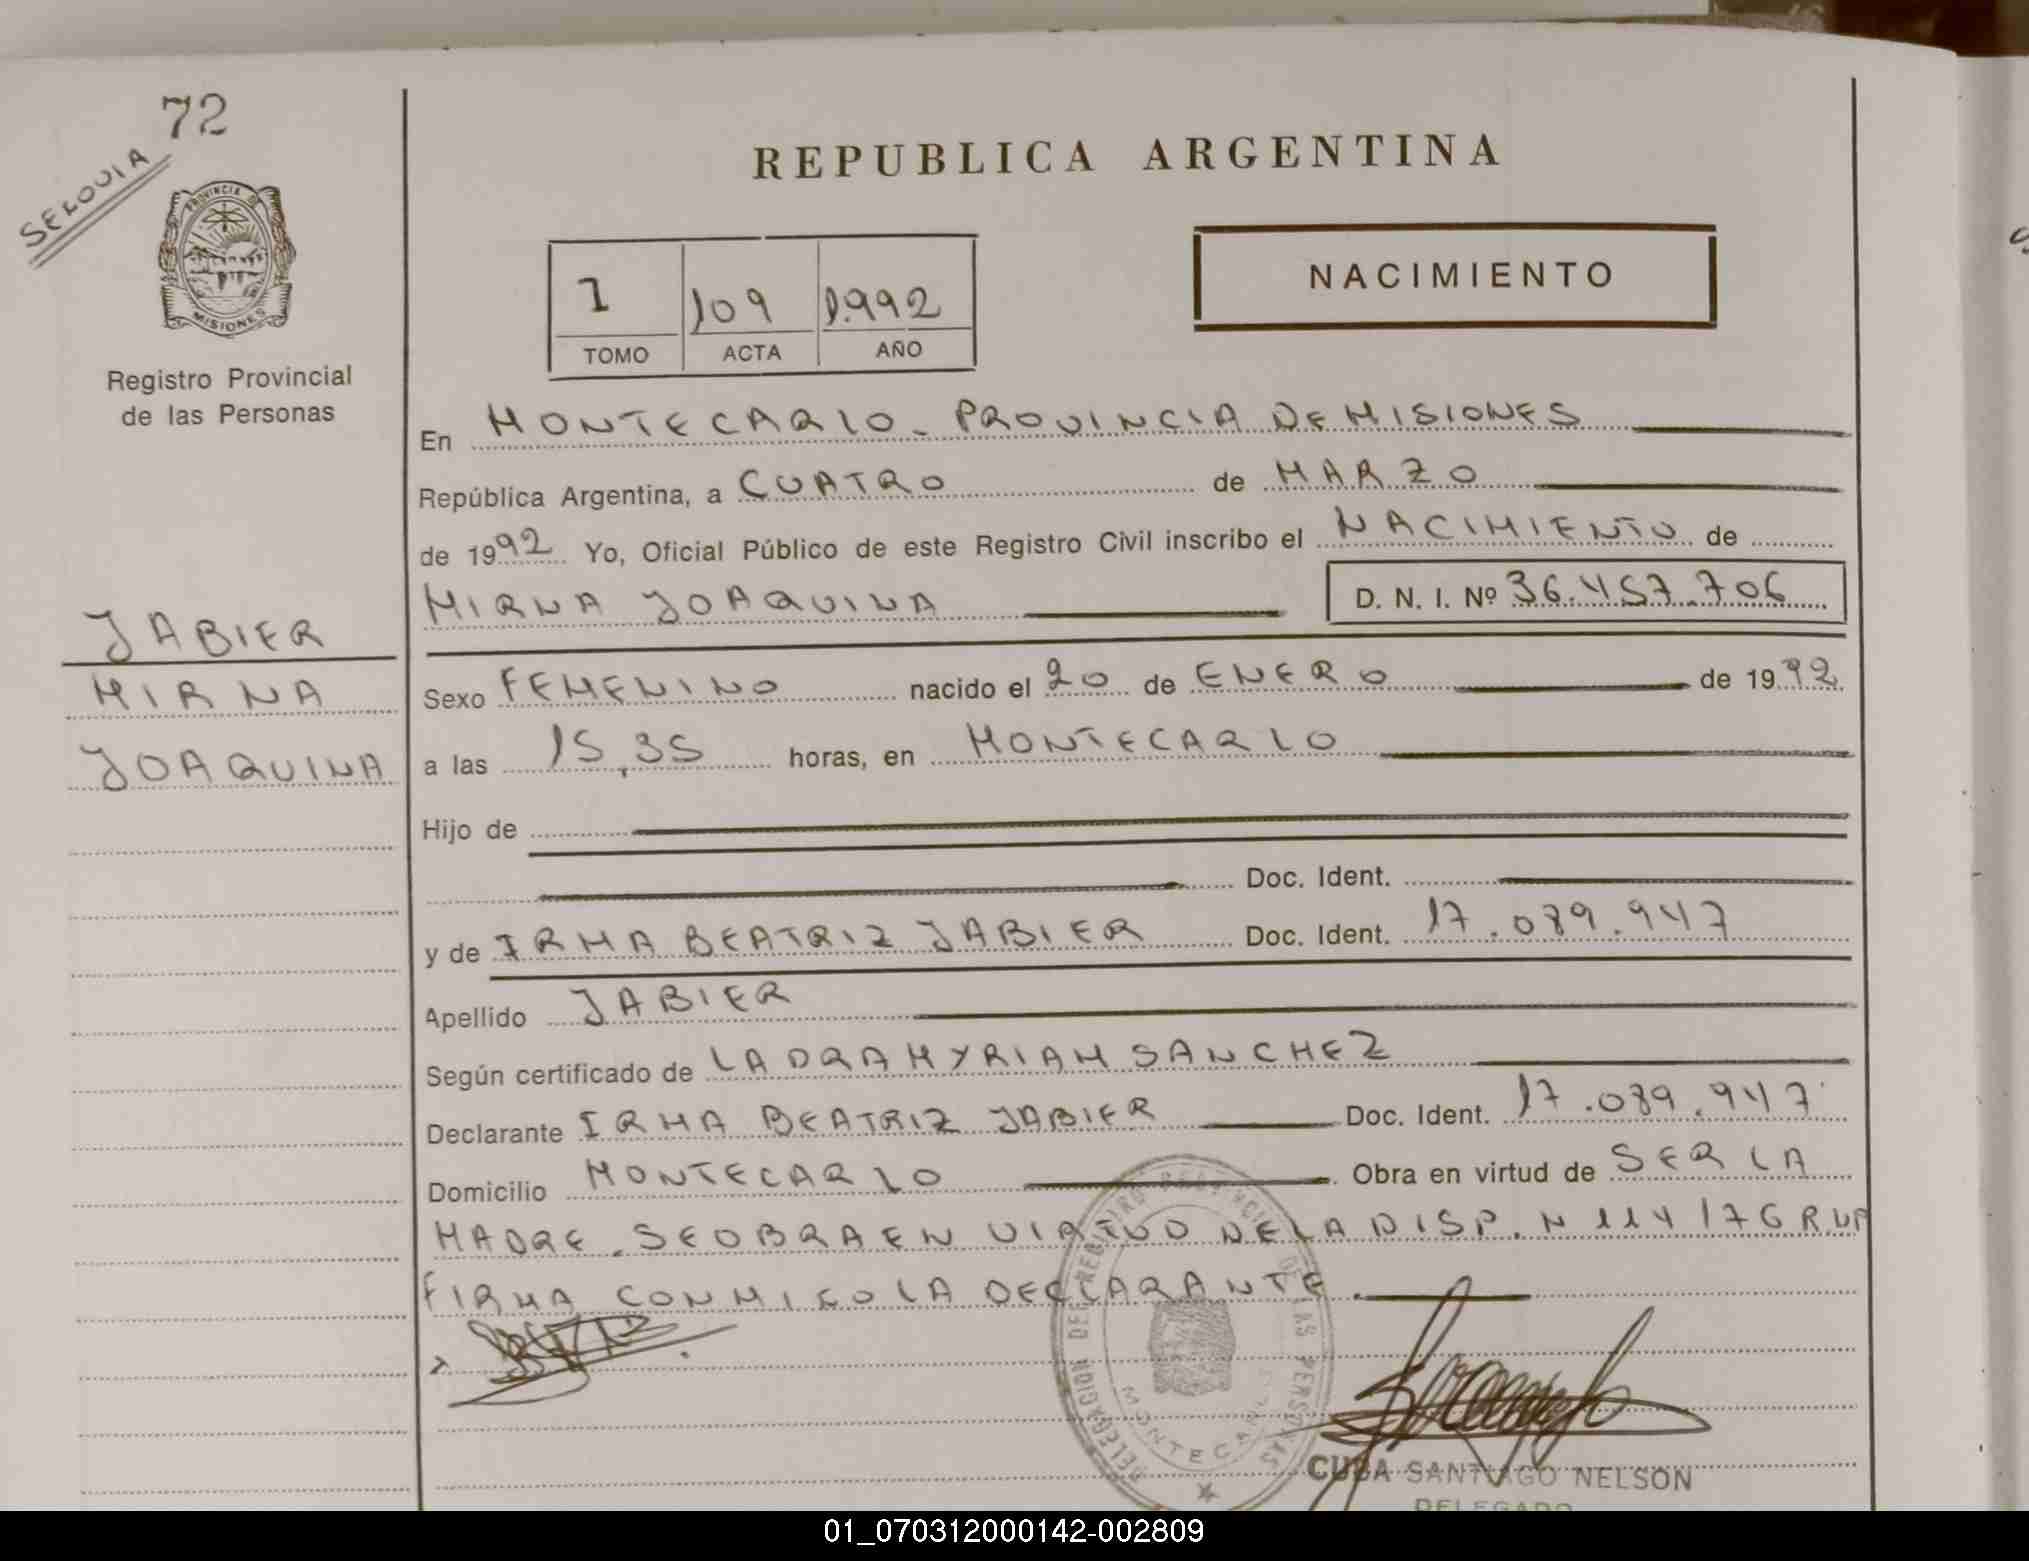 72
SELOUIA
REPUBLICA ARGENTINA
PROVINCIA DE
MISIONES
Registro Provincial
de las Personas
NACIMIENTO
1 109 1.992
TOMO ACTA AÑO
En MONTECARLO - PROVINCIA DE MISIONES
República Argentina, a CUATRO de MARZO
de 1992 Yo, Oficial Público de este Registro Civil inscribo el NACIMIENTO de
MIRNA JOAQUINA D. N. I. Nº 36.457.706
JABIER
MIRNA
JOAQUINA
Sexo FEMENINO nacido el 20 de ENERO de 1992
a las 15,35 horas, en MONTECARLO
Hijo de
Doc. Ident.
y de IRMA BEATRIZ JABIER Doc. Ident. 17.089.947
Apellido JABIER
Según certificado de LA DRA MYRIAM SANCHEZ
Declarante IRMA BEATRIZ JABIER Doc. Ident. 17.089.947
Domicilio MONTECARLO Obra en virtud de SER LA
MADRE. SE OBRA EN VIRTUD DE LA DISP. N 114/76 R.UP
FIRMA CONMIGO LA DECLARANTE.
DELEGACION DEL REGISTRO PROVINCIAL DE LAS PERSONAS
MONTECARLO
CUBA SANTIAGO NELSON
DELEGADO
01_070312000142-002809